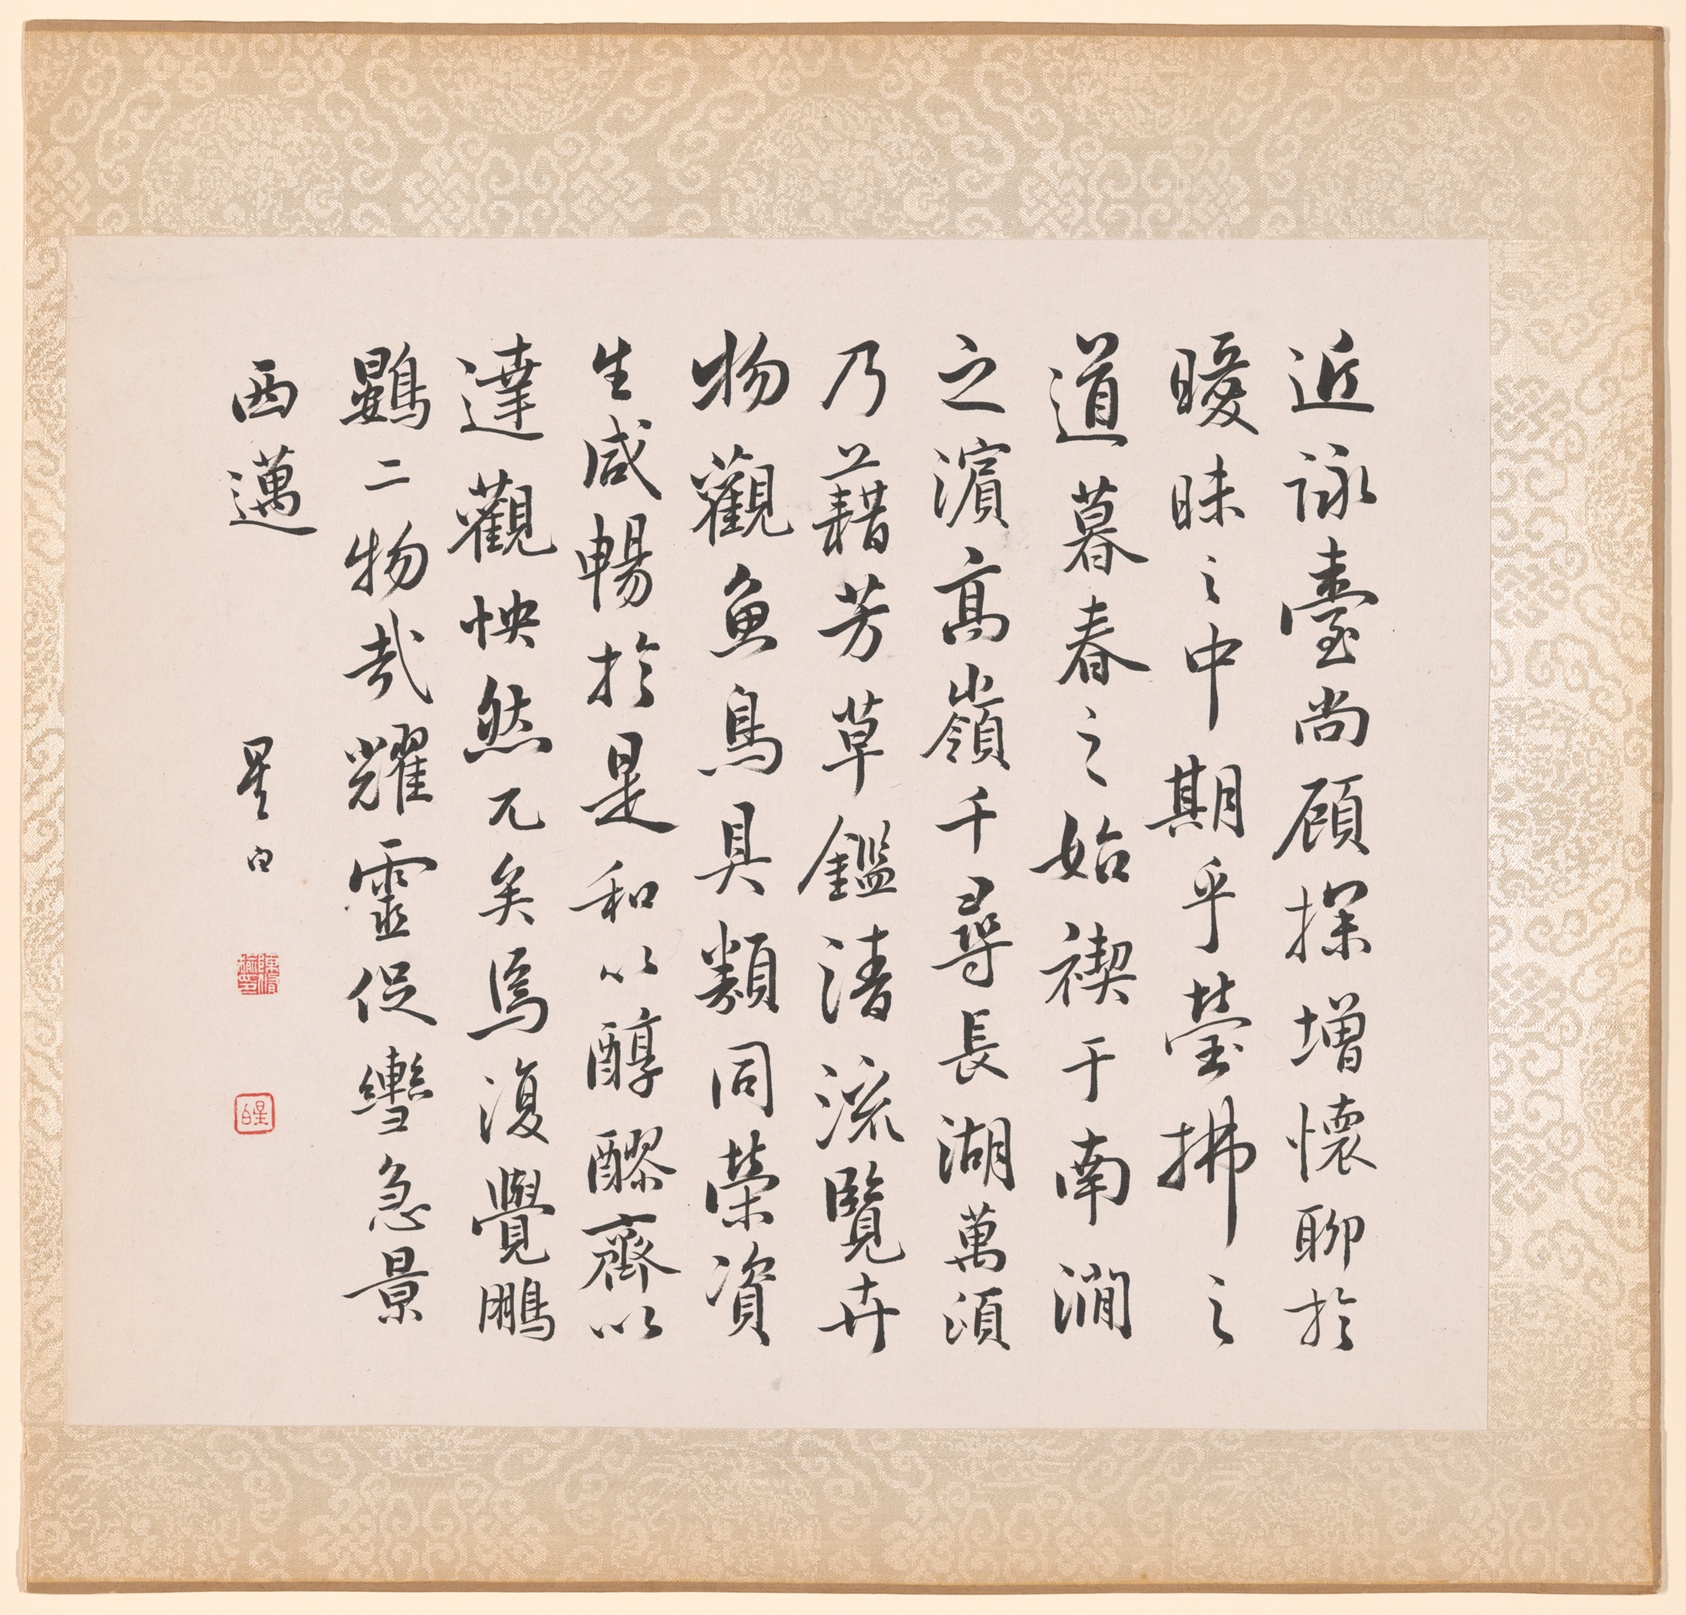 近詠臺尚顧探增懷聊於
曖昧之中期乎瑩拂之
道暮春之始禊于南澗
之濱高嶺千尋長湖萬頃
乃藉芳草鑑清流覽卉
物觀魚鳥具類同榮資
生咸暢於是和以醇醪齊以
達觀怏然兀矣焉復覺鵬
鷃二物哉耀靈促轡急景
西邁 星白